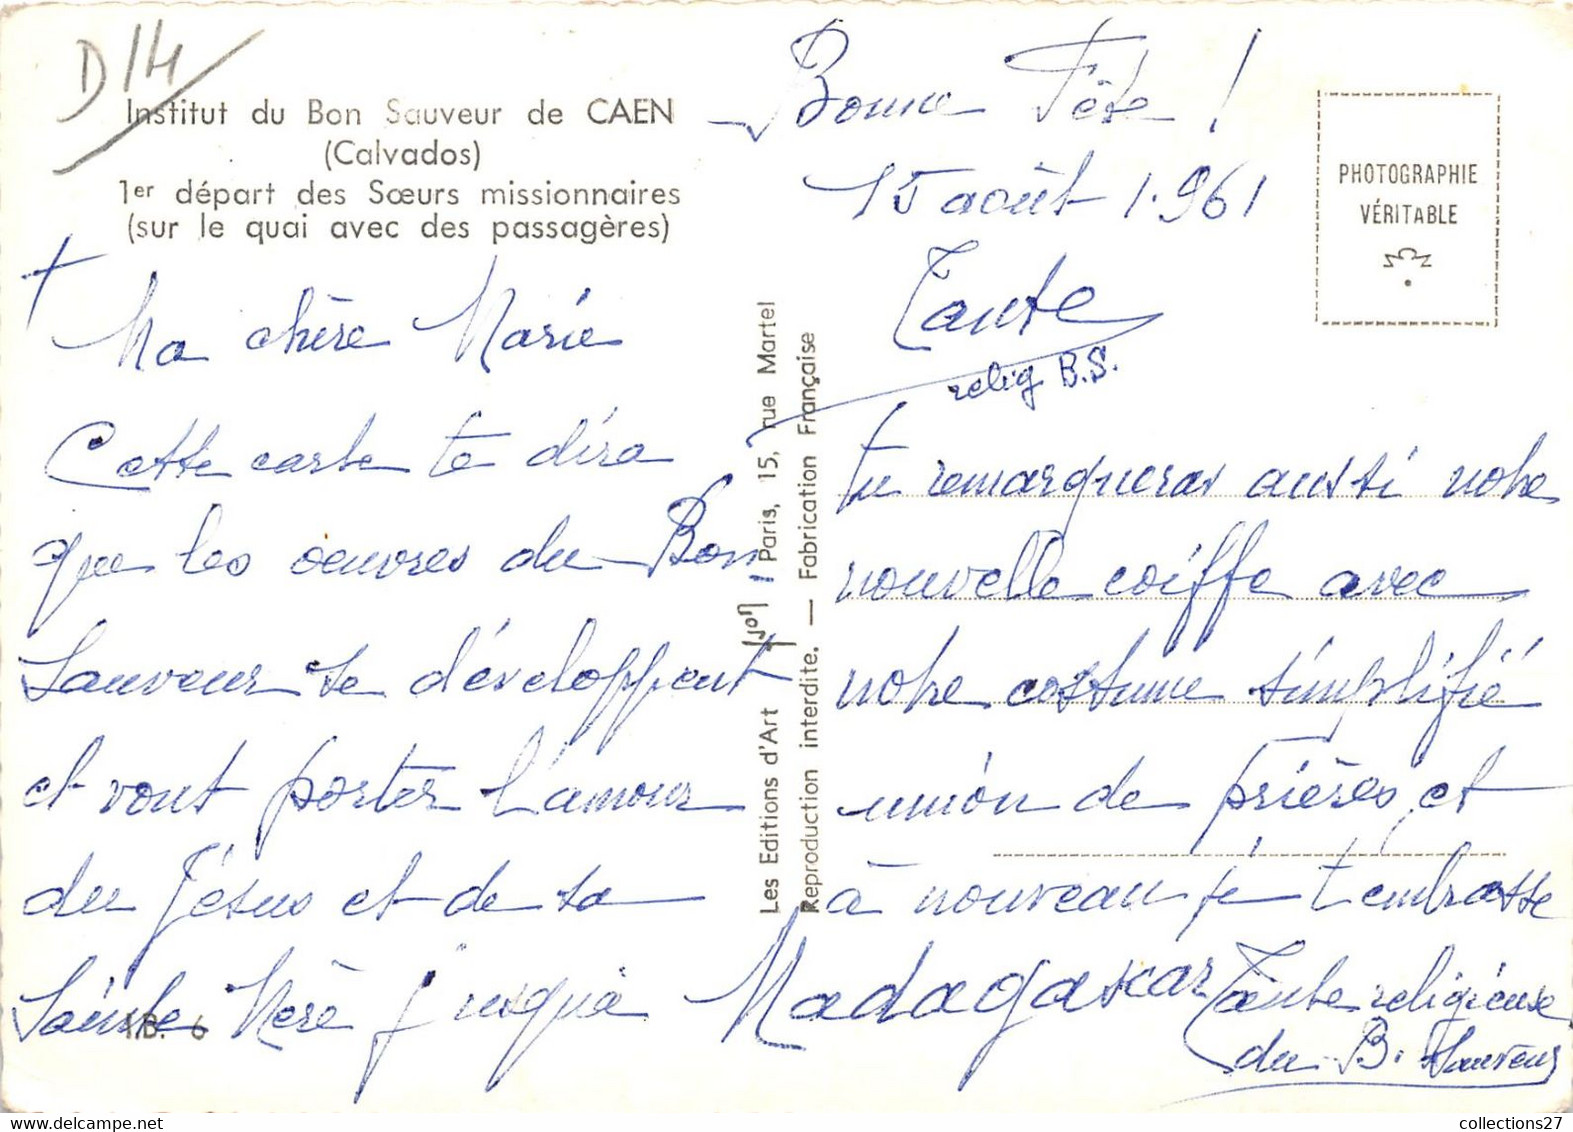 D14
Institut du Bon Sauveur de CAEN
(Calvados)
1er départ des Sœurs missionnaires
(sur le quai avec des passagères)
Ma chère Marie
Cette carte te dira
que les oeuvres du Bon
Sauveur se développent
et vont porter l'amour
du Jésus et de sa
Sainte Mère jusqu'à Madagascar
I.B. 6
Les Editions d'Art Yvon - Paris, 15, rue Martel
Reproduction interdite. — Fabrication Française
Bonne Fête !
15 août 1.961
Tante
relig B.S.
PHOTOGRAPHIE
VÉRITABLE
Tu remarqueras aussi notre
nouvelle coiffe avec
notre costume simplifié
union de prières et
à nouveau je t'embrasse
Tante religieuse
du B. Sauveur
collections27